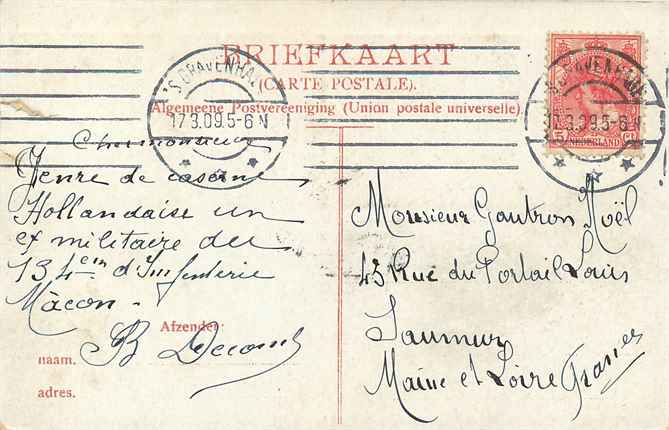 BRIEFKAART
(CARTE POSTALE).
Algemeene Postvereeniging (Union postale universelle).
'S GRAVENHAGE
17.3.09.5-6 N
'S GRAVENHAGE
17.3.09.5-6 N
5 Ct
NEDERLAND
Cher monsieur
Genre de caserne
Hollandaise un
ex militaire du
134em d'Infenterie
Macon.
Afzender:
naam. B
adres.
Monsieur Gautron Noël
45 Rue du Portail Louis
Saumur
Maine et Loire France